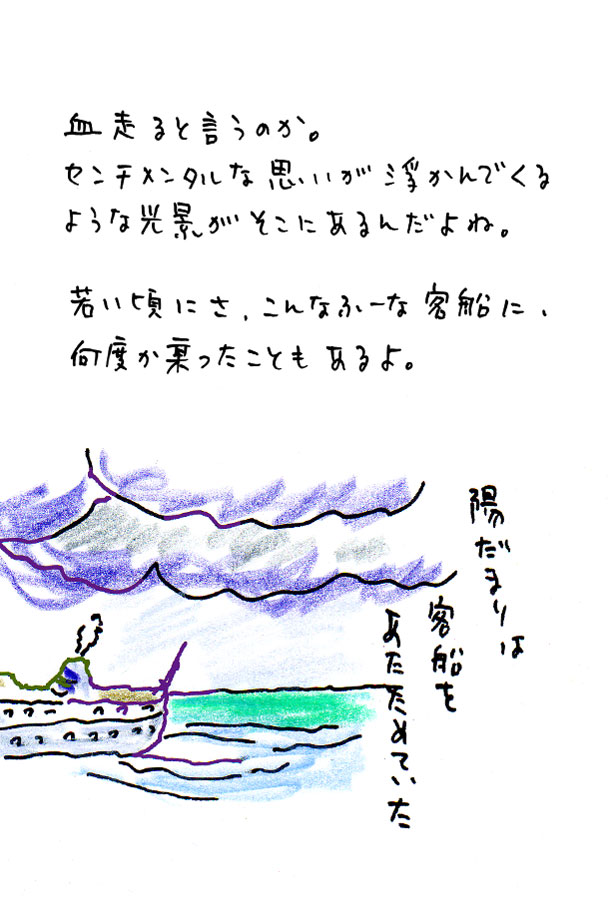 血走ると言うのか。
センチメンタルな思いが浮かんでくる
ような光景がそこにあるんだよね。
若い頃にさ、こんなふーな客船に、
何度か乗ったこともあるよ。
陽だまりは
客船を
あたためていた